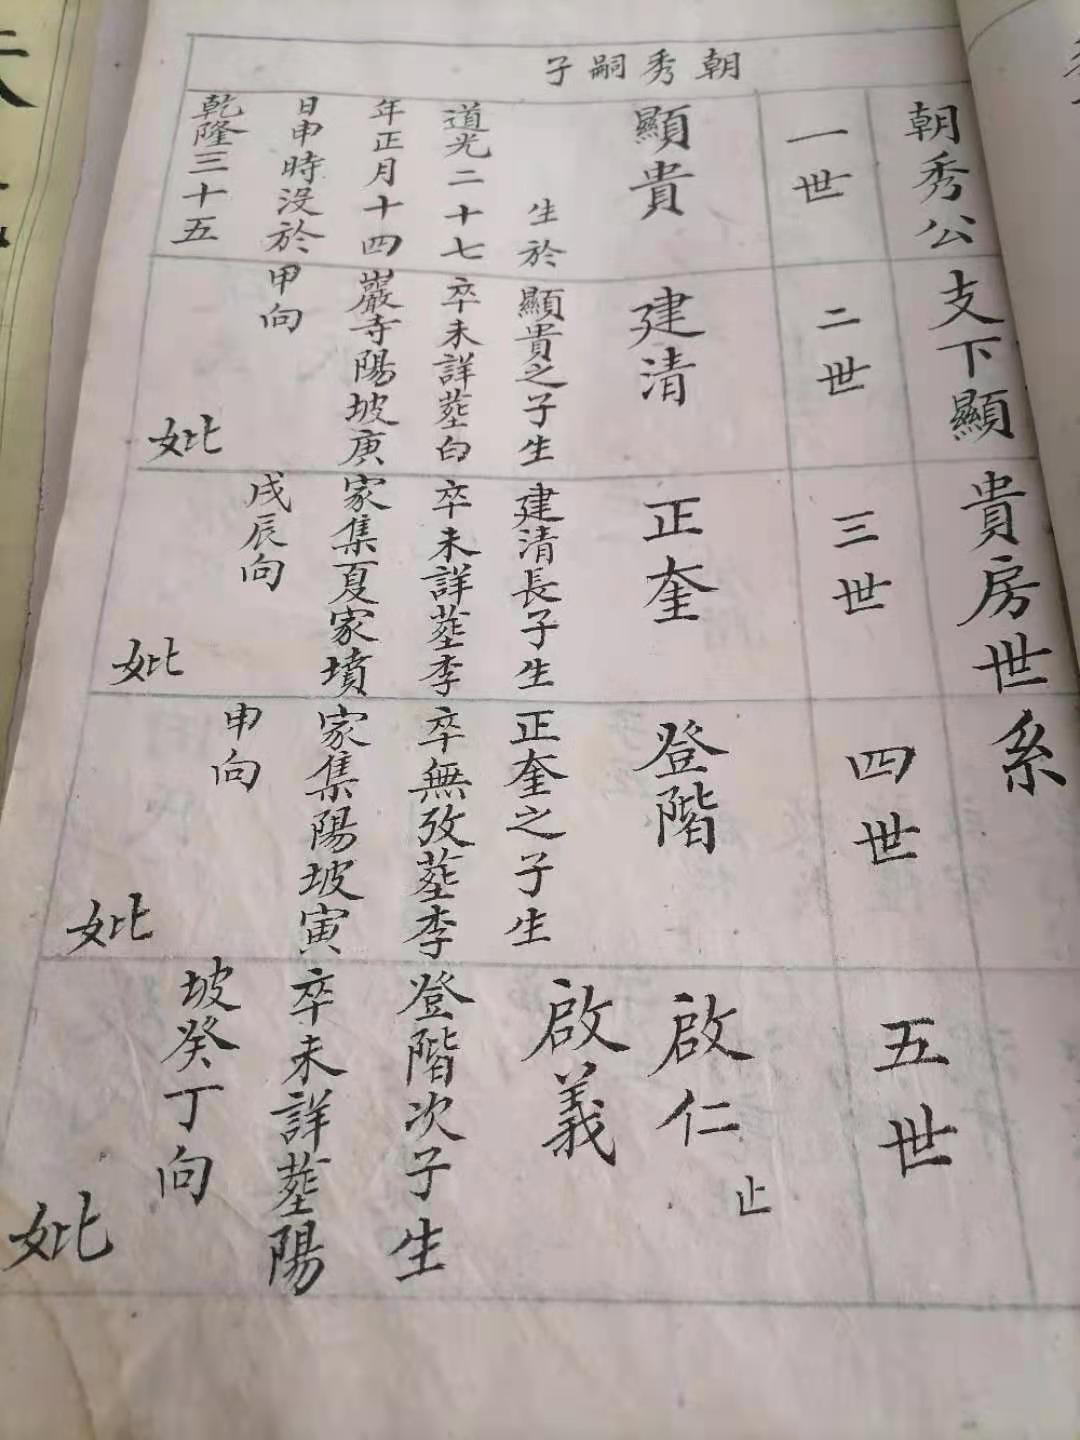 朝秀公支下顯貴房世系
朝秀嗣子
一世
顯貴
生於
道光二十七
年正月十四
日申時没於
乾隆三十五
二世
建清
顯貴之子生
卒未詳塟白
巖寺陽坡庚
甲向
妣
三世
正奎
建清長子生
卒未詳塟李
家集夏家墳
戌辰向
妣
四世
登階
正奎之子生
卒無攷塟李
家集陽坡寅
申向
妣
五世
啟仁
止
啟義
登階次子生
卒未詳塟陽
坡癸丁向
妣